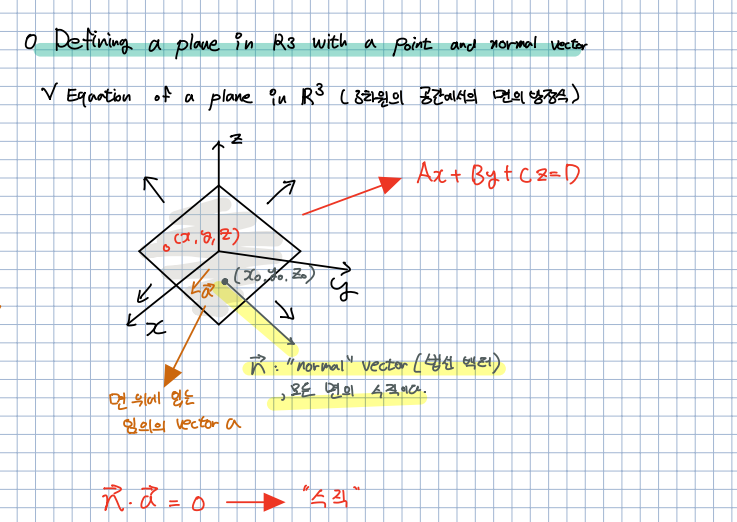 O Defining a plane in R3 with a point and normal vector
√ Equation of a plane in R³ (3차원의 공간에서의 면의 방정식)
z
Ax + By + Cz = D
(x, y, z)
(x₀, y₀, z₀)
y
a⃗
x
n⃗ : "normal" vector (법선 벡터)
, 모든 면의 수직이다.
면 위에 있는
임의의 vector a
n⃗ · a⃗ = 0 → "수직"